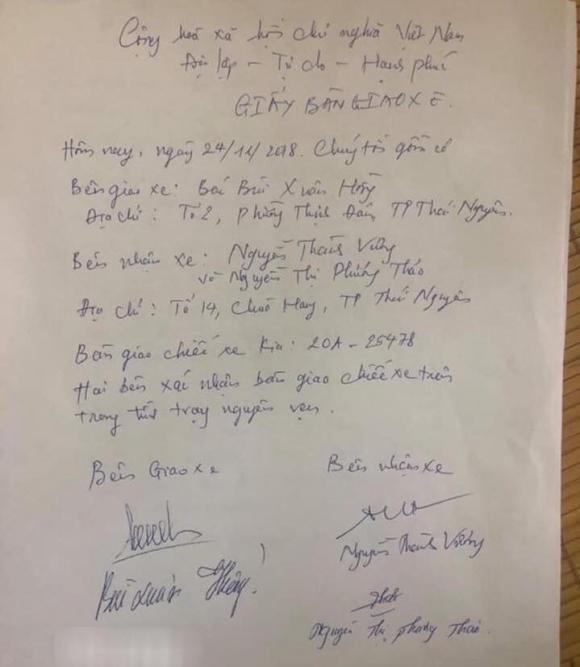 Cộng hoà xã hội chủ nghĩa Việt Nam
Độc lập - Tự do - Hạnh phúc
GIẤY BÀN GIAO XE.
Hôm nay, ngày 24/12/2018. Chúng tôi gồm có
Bên giao xe: Bùi Xuân Hồng
Địa chỉ: Tổ 2, phường Thịnh Đán, TP Thái Nguyên.
Bên nhận xe: Nguyễn Thành Vương
và Nguyễn Thị Phương Thảo
Địa chỉ: Tổ 14, Chùa Hang, TP Thái Nguyên
Bàn giao chiếc xe Kia: 20A - 25478
Hai bên xác nhận bàn giao chiếc xe trên
trong tình trạng nguyên vẹn.
Bên Giao xe
Bên nhận xe
Nguyễn Thành Vương
Bùi Xuân Hồng
Nguyễn Thị Phương Thảo